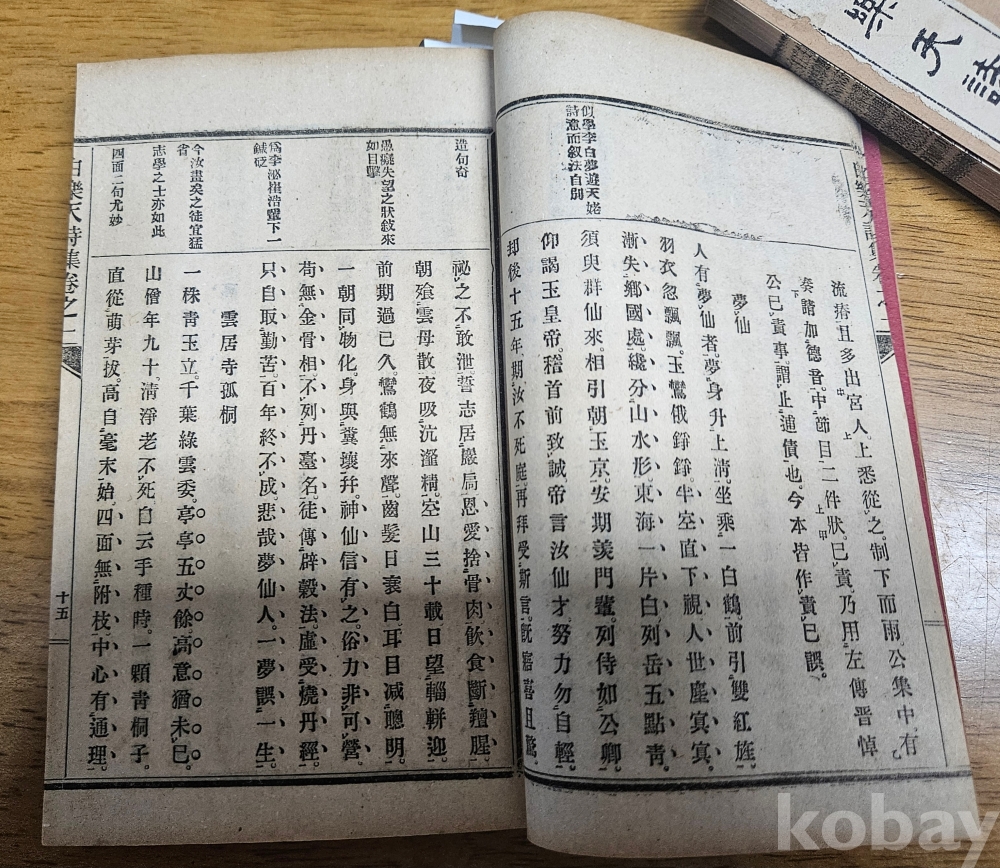 樂天詩
似學李白夢遊天姥
詩意而叙法自別
流痔且多出宮人上悉從之制下而雨公集中有
奏請加德音中節目二件狀已責乃用左傳晋悼
公已責事謂止逋債也今本皆作責已誤
夢仙
人有夢仙者夢身升上淸坐乘一白鶴前引雙紅旌
羽衣忽飄飄玉鸞俄錚錚半空直下視人世塵冥冥
漸失鄉國處纔分山水形東海一片白列岳五點靑
須臾群仙來相引朝玉京安期羨門輩列侍如公卿
仰謁玉皇帝稽首前致誠帝言汝仙才努力勿自輕
却後十五年期汝不死庭再拜受斯言旣寤喜且驚
造句奇
愚癡失望之狀敍來
如目擊
爲李泌崔浩輩下一
鍼砭
今汝畫矣之徒宜猛
省
志學之士亦如此
四面二句尤妙
祕之不敢泄誓志居巖扃恩愛捨骨肉飮食斷羶腥
朝飡雲母散夜吸沆瀣精空山三十載日望輜軿迎
前期過已久鸞鶴無來聲齒髮日衰白耳目减聰明
一朝同物化身與糞壤幷神仙信有之俗力非可營
苟無金骨相不列丹臺名徒傳辟穀法虛受燒丹經
只自取勤苦百年終不成悲哉夢仙人一夢誤一生
雲居寺孤桐
一株靑玉立千葉綠雲委亭亭五丈餘高意猶未已
山僧年九十淸淨老不死自云手種時一顆靑桐子
直從萌芽拔高自毫末始四面無附枝中心有通理
白樂天詩集卷之一
十五
kobay